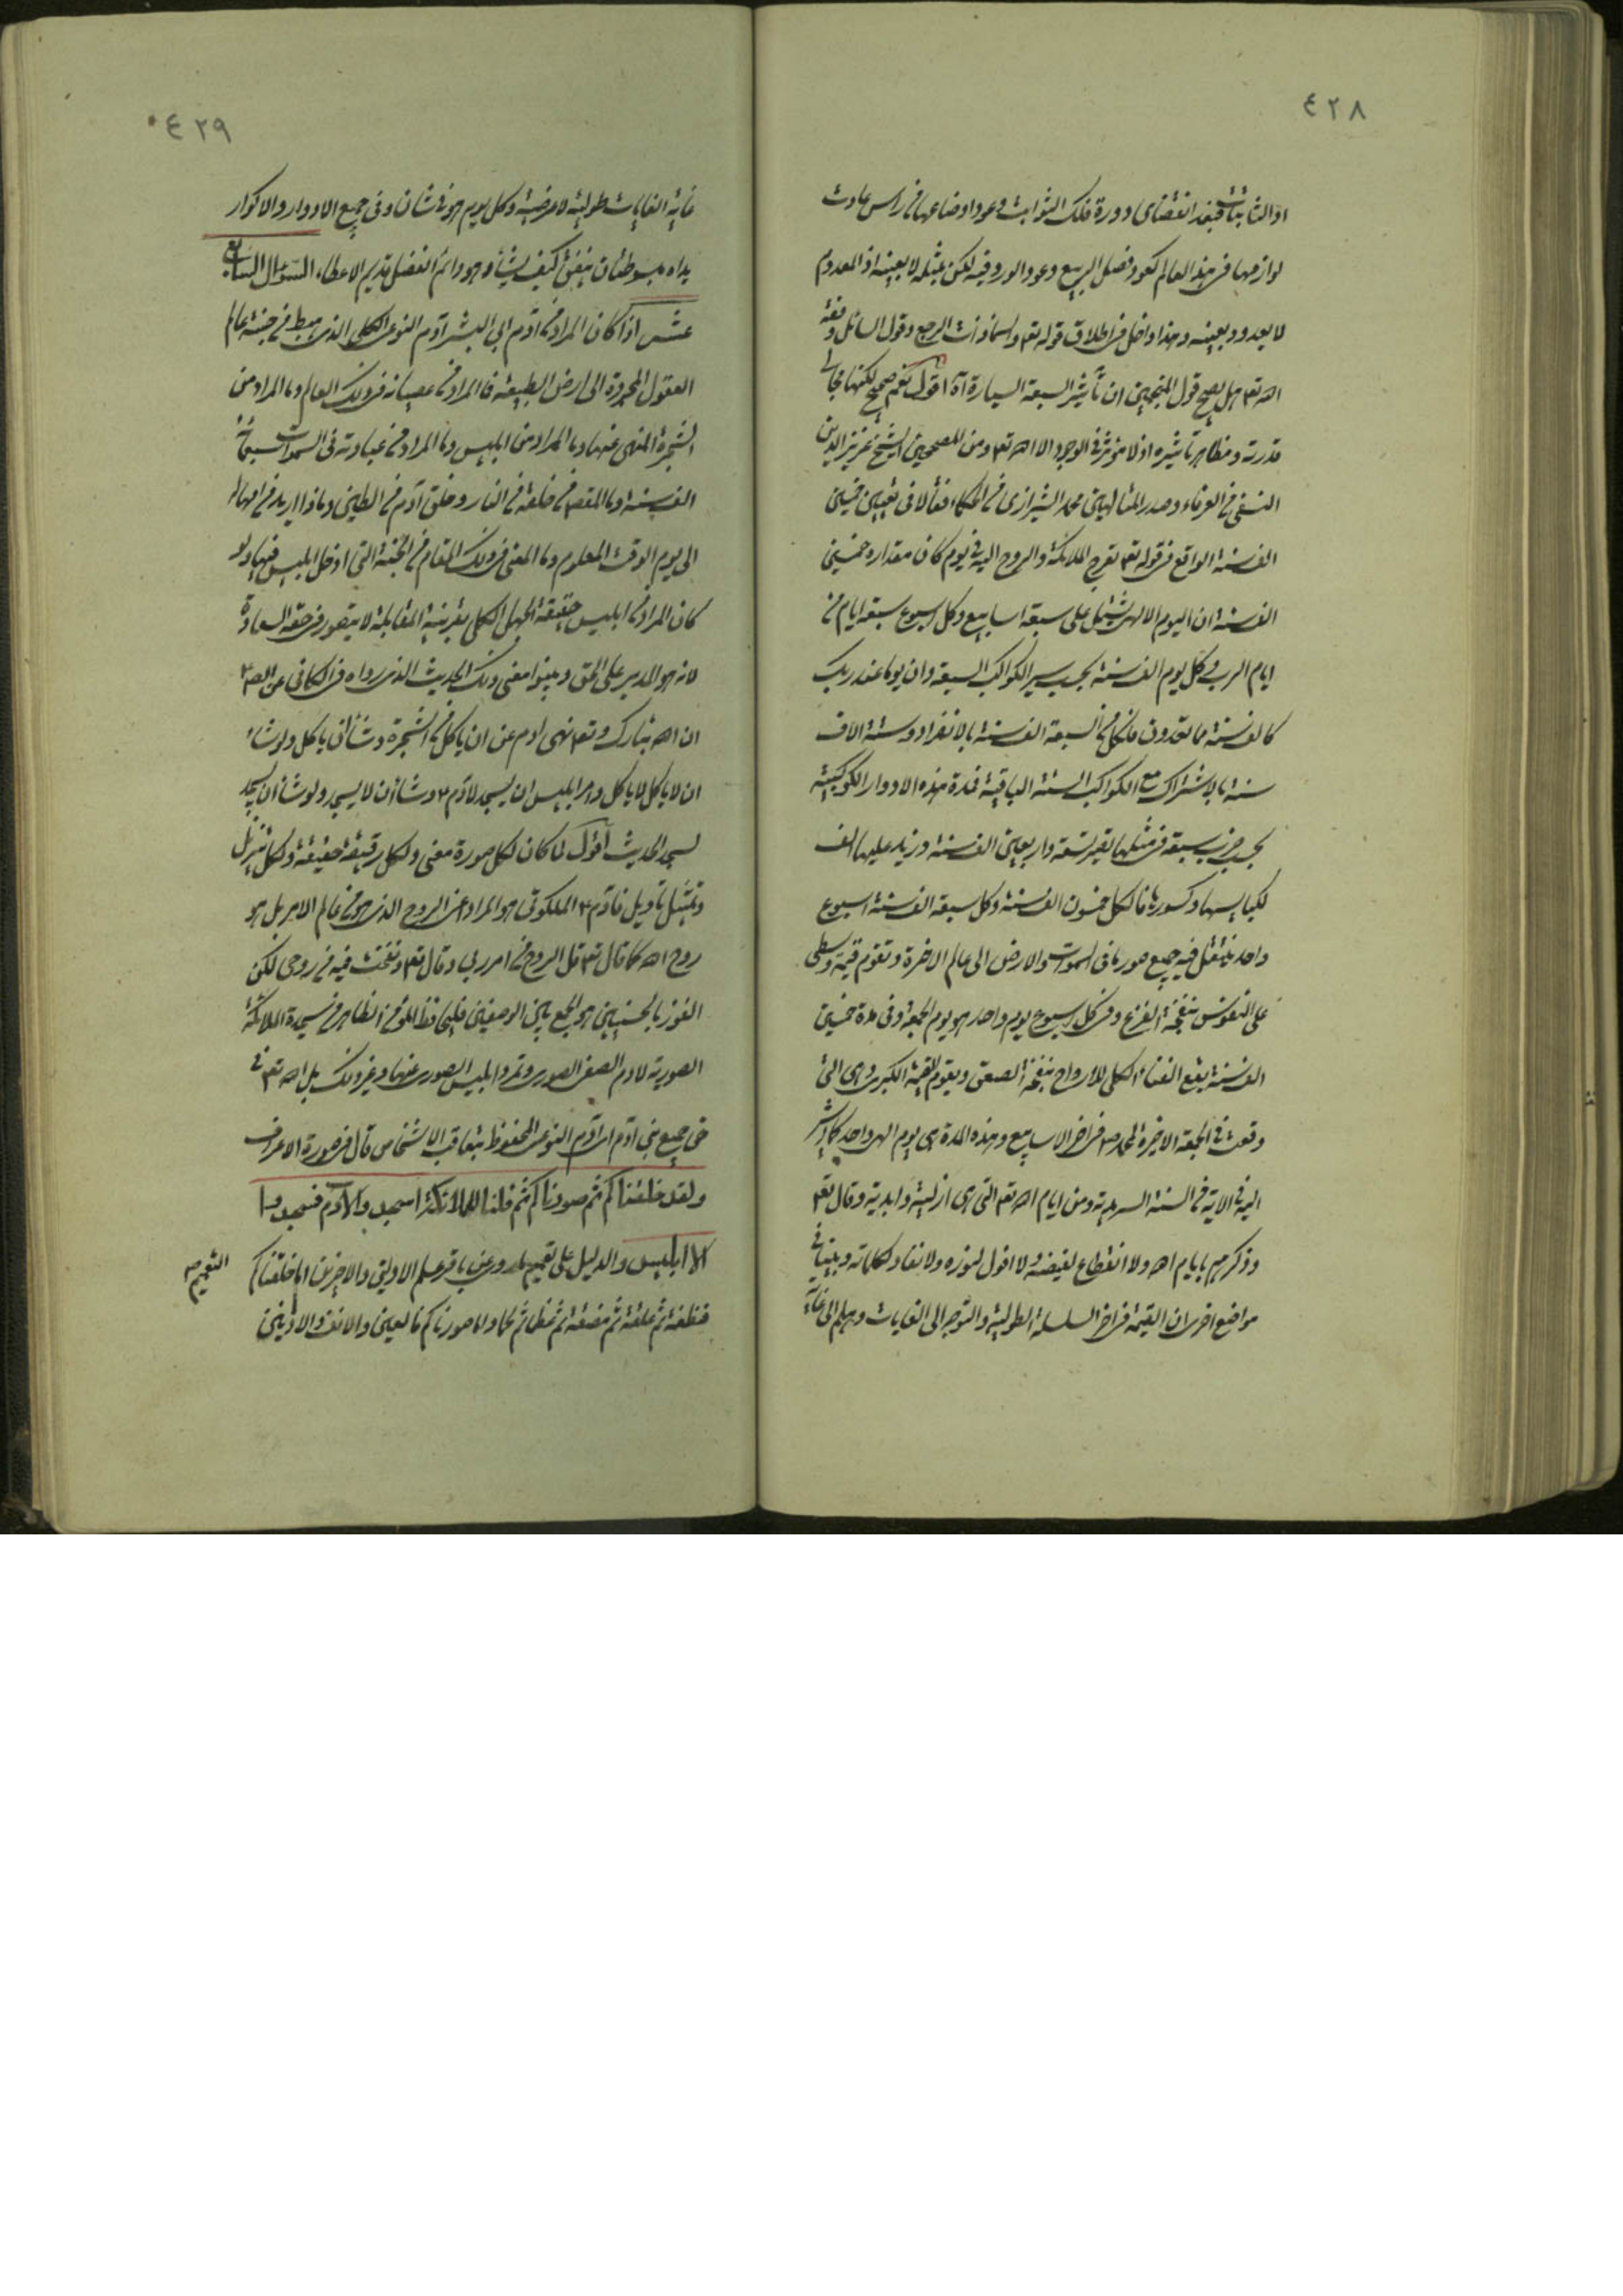 ٤٢٨
او الثابتات فبعد انقضاى دورة فلك الثوابت وعود اوضاعها من راس عادت
لوازمها فى هذا العالم كعود فصل الربيع وعود الورد فيه لكن بمثله لا بعينه اذ المعدوم
لا يعود بعينه وهذا داخل فى اطلاق قوله تع والسماء ذات الرجع وقول السائل وفقه
الله تع هل يصح قول المنجمين ان تأثير السبعة السيارة آه اقول نعم صحيح لكنها مجالى
قدرته ومظاهر تأثيره اذ لا مؤثر فى الوجود الا الله تع ومن المصححين الشيخ عزيز الدين
النسفى من العرفاء وصدر المتالهين محمد الشيرازى من الحكماء فقالا فى تعيين خمسين
الف سنة الواقع فى قوله تع تعرج الملائكة والروح اليه فى يوم كان مقداره خمسين
الف سنة ان اليوم الالهى يشتمل على سبعة اسابيع وكل اسبوع سبعة ايام من
ايام الرب وكل يوم الف سنة بحسب سير الكواكب السبعة وان يوما عند ربك
كالف سنة مما تعدون فلكل من السبعة الف سنة بالانفراد وستة الاف
سنة بالاشتراك مع الكواكب الستة الباقية فمدة هذه الادوار الكوكبية
بحسب ضرب سبعة فى مثلها تصير تسعة واربعين الف سنة وزيد عليها الف
لكبايسها وكسورها فالكل خمسون الف سنة وكل سبعة الف سنة اسبوع
واحد ينتقل فيه جميع صور ما فى السموات والارض الى عالم الاخرة وتقوم قيمة وسطى
على النفوس بنفخة الفزع وفى كل اسبوع يوم واحد هو يوم الجمعة وفى مدة خمسين
الف سنة يقع الفناء الكلى للارواح بنفخة الصعق ويقوم القيمة الكبرى وهى التى
وقعت فى الجمعة الاخيرة المحمدية فى اخر الاسابيع وهذه المدة هى يوم الهى واحد كما اشير
اليه فى الاية من السنة السرمدية ومن ايام الله تع التى هى ازلية وابدية وقال تع
وذكرهم بايام الله ولا انقطاع لفيضه ولا افول لنوره ولا نفاد لكلماته وبينا فى
مواضع اخرى ان القيمة فى اخر السلسلة الطولية والتوجه الى الغايات وهلم الى غاية
٤٢٩
غاية الغايات طولية لا عرضية وكل يوم هو فى شان وفى جميع الادوار والاكوار
يداه مبسوطتان ينفق كيف يشاء وهو دائم الفضل قديم الاعطاء السؤال السابع
عشر اذا كان المراد من ادم ابى البشر آدم النوعى الكلى الذى هبط من جنة عالم
العقول المجردة الى ارض الطبيعة فما المراد من عصيانه فى ذلك العالم وما المراد من
الشجرة المنهى عنها وما المراد من ابليس وما المراد من عبادته فى السموات سبعمأة
الف سنة وما المقصود من خلقه من النار وخلق آدم من الطين وماذا اريد من امهاله
الى يوم الوقت المعلوم وما المعنى فى ذلك المقام من الجنة التى ادخل ابليس فيها ولو
كان المراد من ابليس حقيقة الجهل الكلى بقرينة المقابلة لا يتصور فى حقه السعادة
لانه هو المدبر على الحق وبينوا معنى ذلك الحديث الذى رواه فى الكافى عن الصادق
ان الله تبارك وتع نهى ادم عن ان ياكل من الشجرة وشاء ان ياكل ولو شاء
ان لا ياكل لا ياكل وامر ابليس ان يسجد لادم وشاء ان لا يسجد ولو شاء ان يسجد
لسجد الحديث اقول لما كان لكل صورة معنى ولكل رقيقة حقيقة ولكل تنزيل
وتمثيل تاويل فآدم الملكوتى هو المراد اعنى الروح الذى هو من عالم الامر بل هو
روح الله كما قال تع قل الروح من امر ربى وقال تع ونفخت فيه من روحى لكن
الفوز بالحسنيين هو الجمع بين الوضعين فليحافظ الظاهر من سجدة الملائكة
الصورية لادم الصفى الصورى وتمرد ابليس الصورى عنها وغير ذلك بل الله تع فى
جميع بنى ادم اى آدم النوعى المحفوظ بتعاقب الاشخاص قال فى صورة الاعراف
ولقد خلقناكم ثم صورناكم ثم قلنا للملائكة اسجدوا لادم فسجدوا
الا ابليس والدليل على تعميم عن باقر علم الاولين والاخرين اما خلقناكم
فنطفة ثم علقة ثم مضغة ثم عظاما ثم لحما واما صورناكم فالعين والانف والاذنين
التعميم